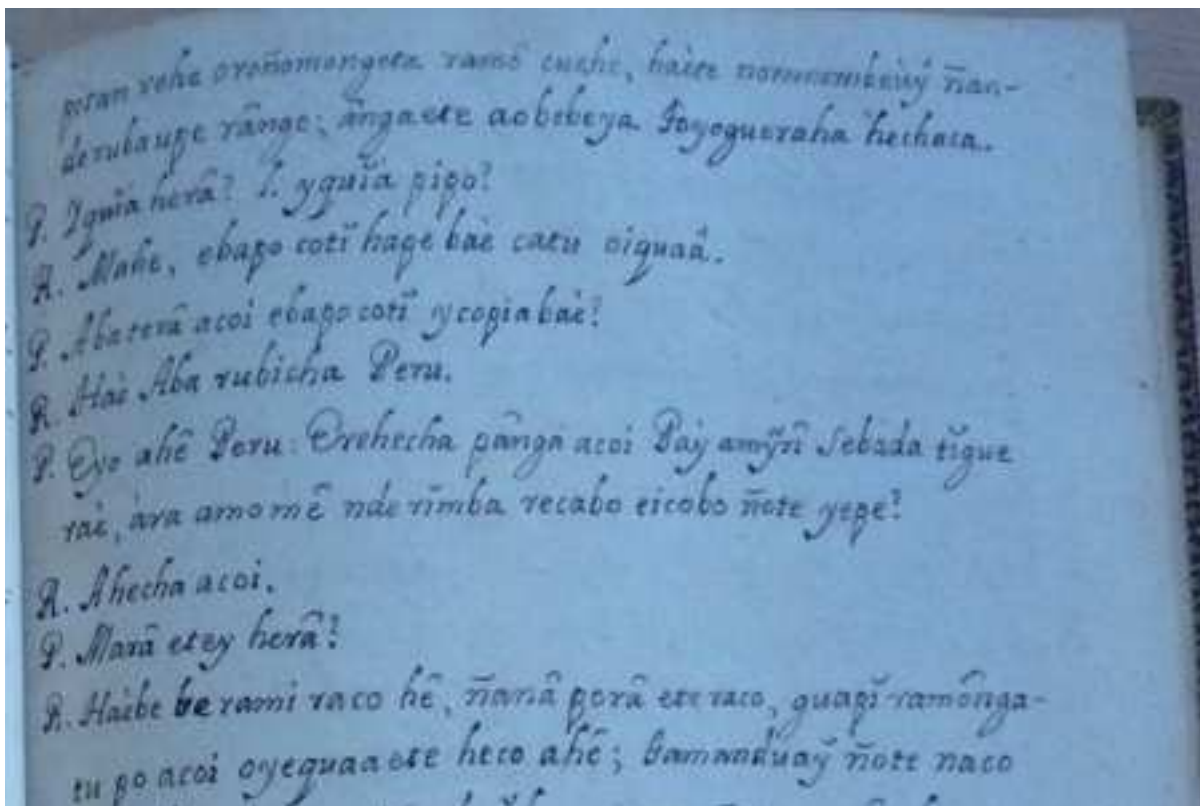 potan rehe oroñomongeta ramô cuehe, haete nomombeuÿ ñan-
derubaupe rânge; ângaete aobebeya Toyogueraha hechaca.
P. Yguĩa herâ? l. yguĩa pipo?
R. Mahe, ebapo cotĩ hage bae catu oiguaâ.
P. Abaterâ acoi ebapo cotĩ ycopiabaè?
R. Haè Aba rubicha Peru.
P. Eyo ahê Peru: Erehecha pânga acoi Paÿ amỹrî Sebada tĩgue
raè, ara amo mê nde rîmba recabo eicobo ñote yepe?
R. Ahecha acoi.
P. Marâ etey herâ?
R. Haèbe be rami raco hê, ñanâ porâ ete raco, guapĩ ramônga-
tu po acoi oyeguaa ete heco ahê; Tamanduaÿ ñote naco